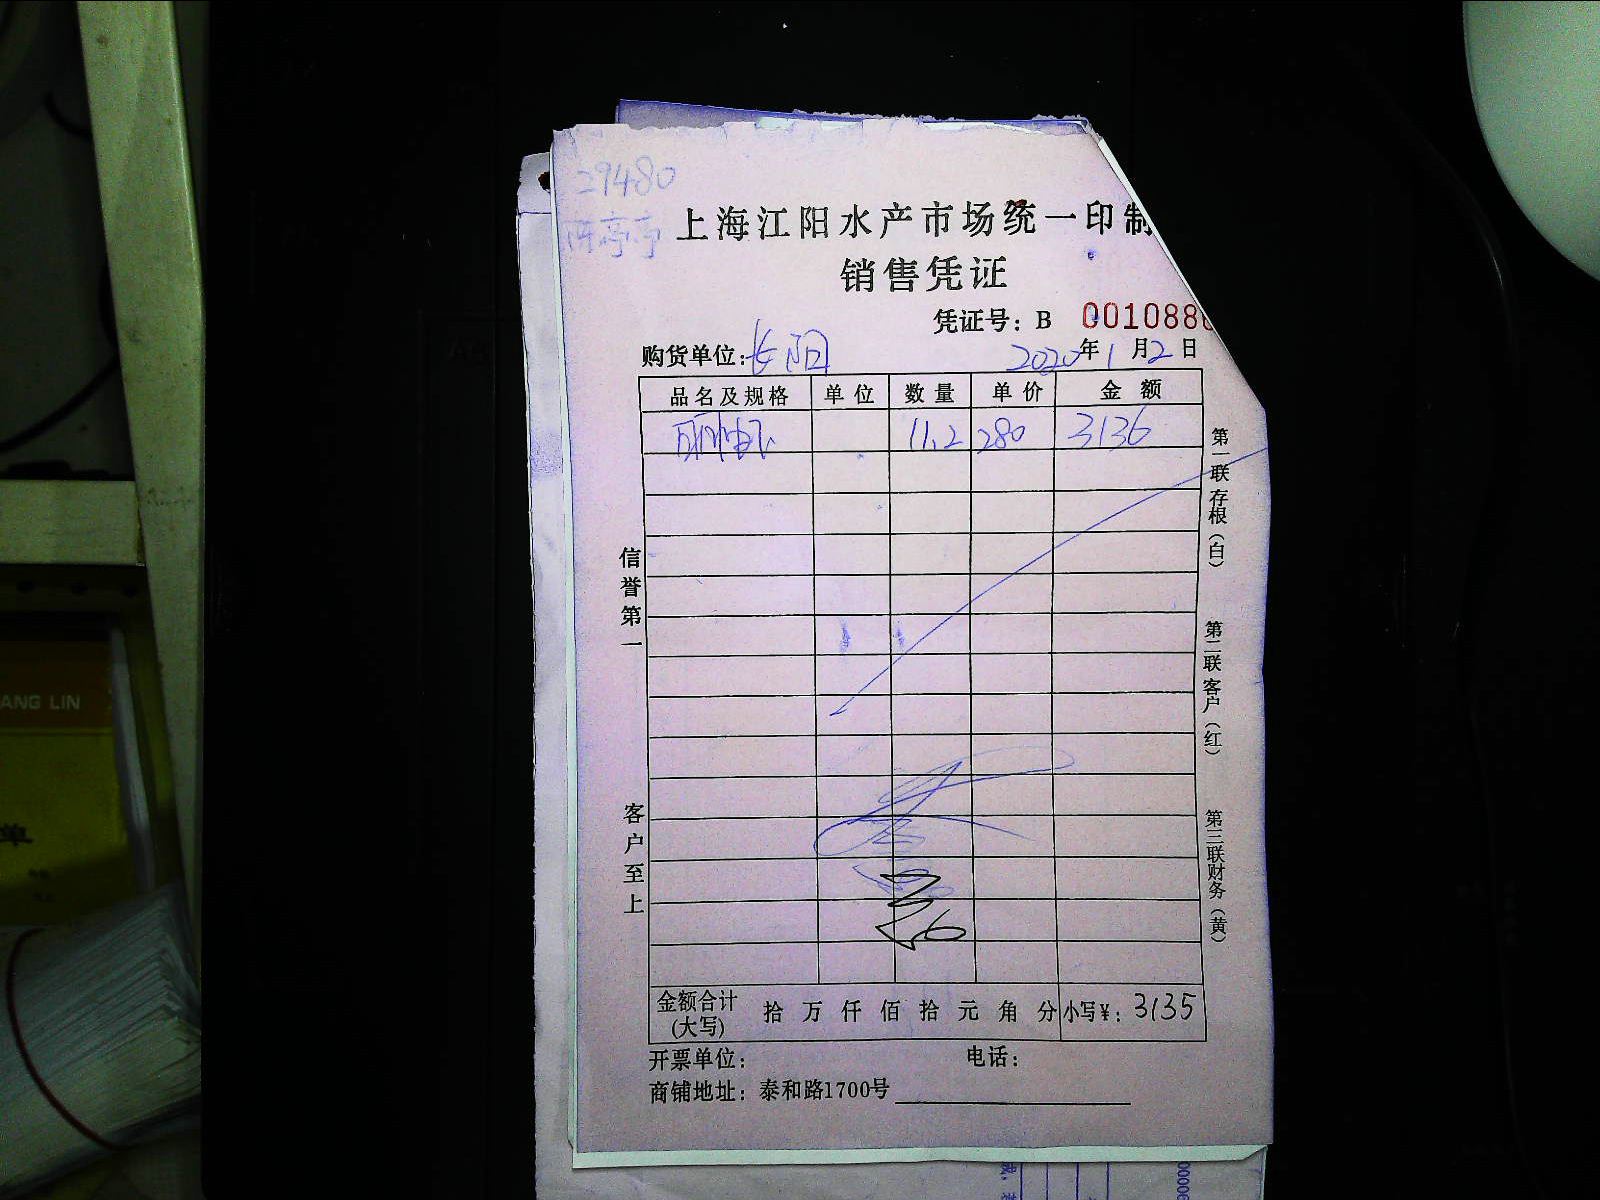 29480
亭亭
上海江阳水产市场统一印制
销售凭证
凭证号：B 001088
购货单位：长阳 2020年1月2日
品名及规格 单位 数量 单价 金额
11.2 280 3136
第一联存根（白）
第二联客户（红）
第三联财务（黄）
信誉第一
客户至上
金额合计(大写) 拾 万 仟 佰 拾 元 角 分 小写¥：3135
开票单位： 电话：
商铺地址：泰和路1700号
ANG LIN
单